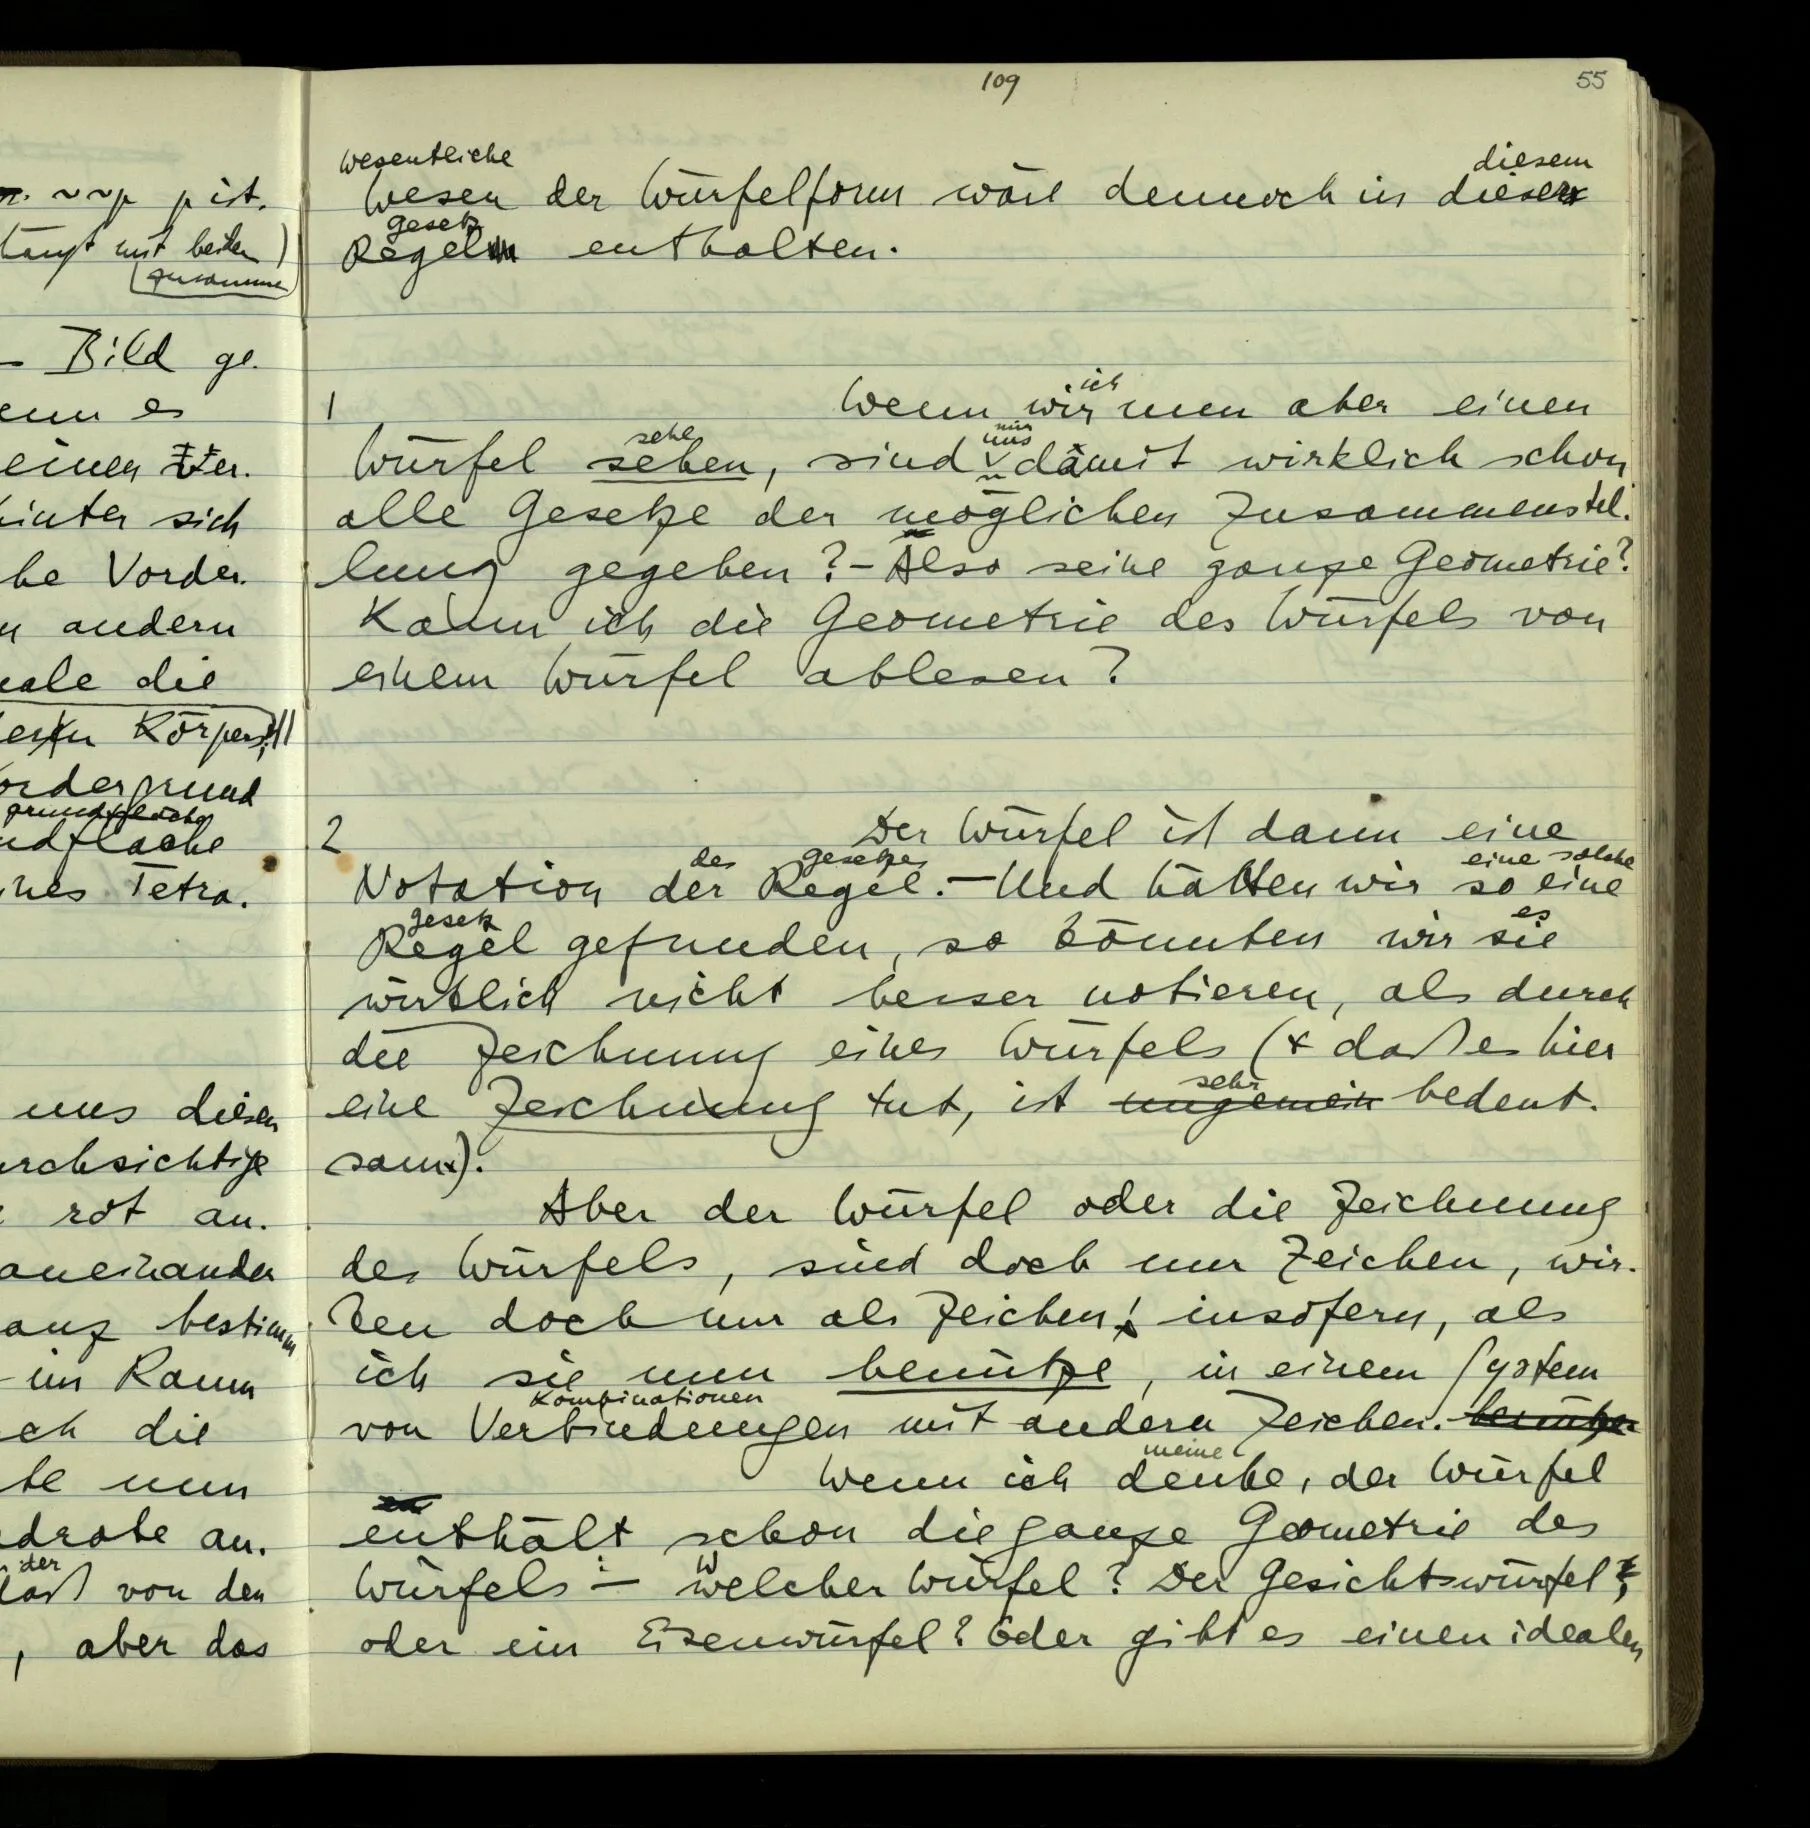 109
55
wesentliche
diesem
Wesen der Würfelform wäre dennoch in dieser
gesetz
Regel enthalten.
ich
1 Wenn wir nun aber einen
sehe
mir
uns
Würfel sehen, sind damit wirklich schon
alle Gesetze der möglichen Zusammenstel-
lung gegeben? – Also seine ganze Geometrie?
Kann ich die Geometrie des Würfels von
einem Würfel ablesen?
2 Der Würfel ist dann eine
des gesetzes eine solche
Notation der Regel. – Und hätten wir so eine
gesetz es
Regel gefunden, so könnten wir sie
wirklich nicht besser notieren, als durch
die Zeichnung eines Würfels (daß es hier
sehr
eine Zeichnung tut, ist ungemein bedeut-
sam).
Aber der Würfel oder die Zeichnung
des Würfels, sind doch nur Zeichen, wir-
ken doch nur als Zeichen! insofern, als
ich sie nun benütze, in einem System
Kombinationen
von Verbindungen mit andern Zeichen. benütze
meine
Wenn ich denke, der Würfel
enthält schon die ganze Geometrie des
Würfels – welcher Würfel? Der Gesichtswürfel,
oder ein Eisenwürfel? Oder gibt es einen idealen
p ist.
hängt mit beiden)
zusamme
– Bild ge-
es
einen
hinter sich
Vorder-
andern
die
Körpers
grundfläche
Tetra-
uns diesen
rot an.
aneinander
bestimm
im Raum
die
nun
an.
der
von den
, aber das